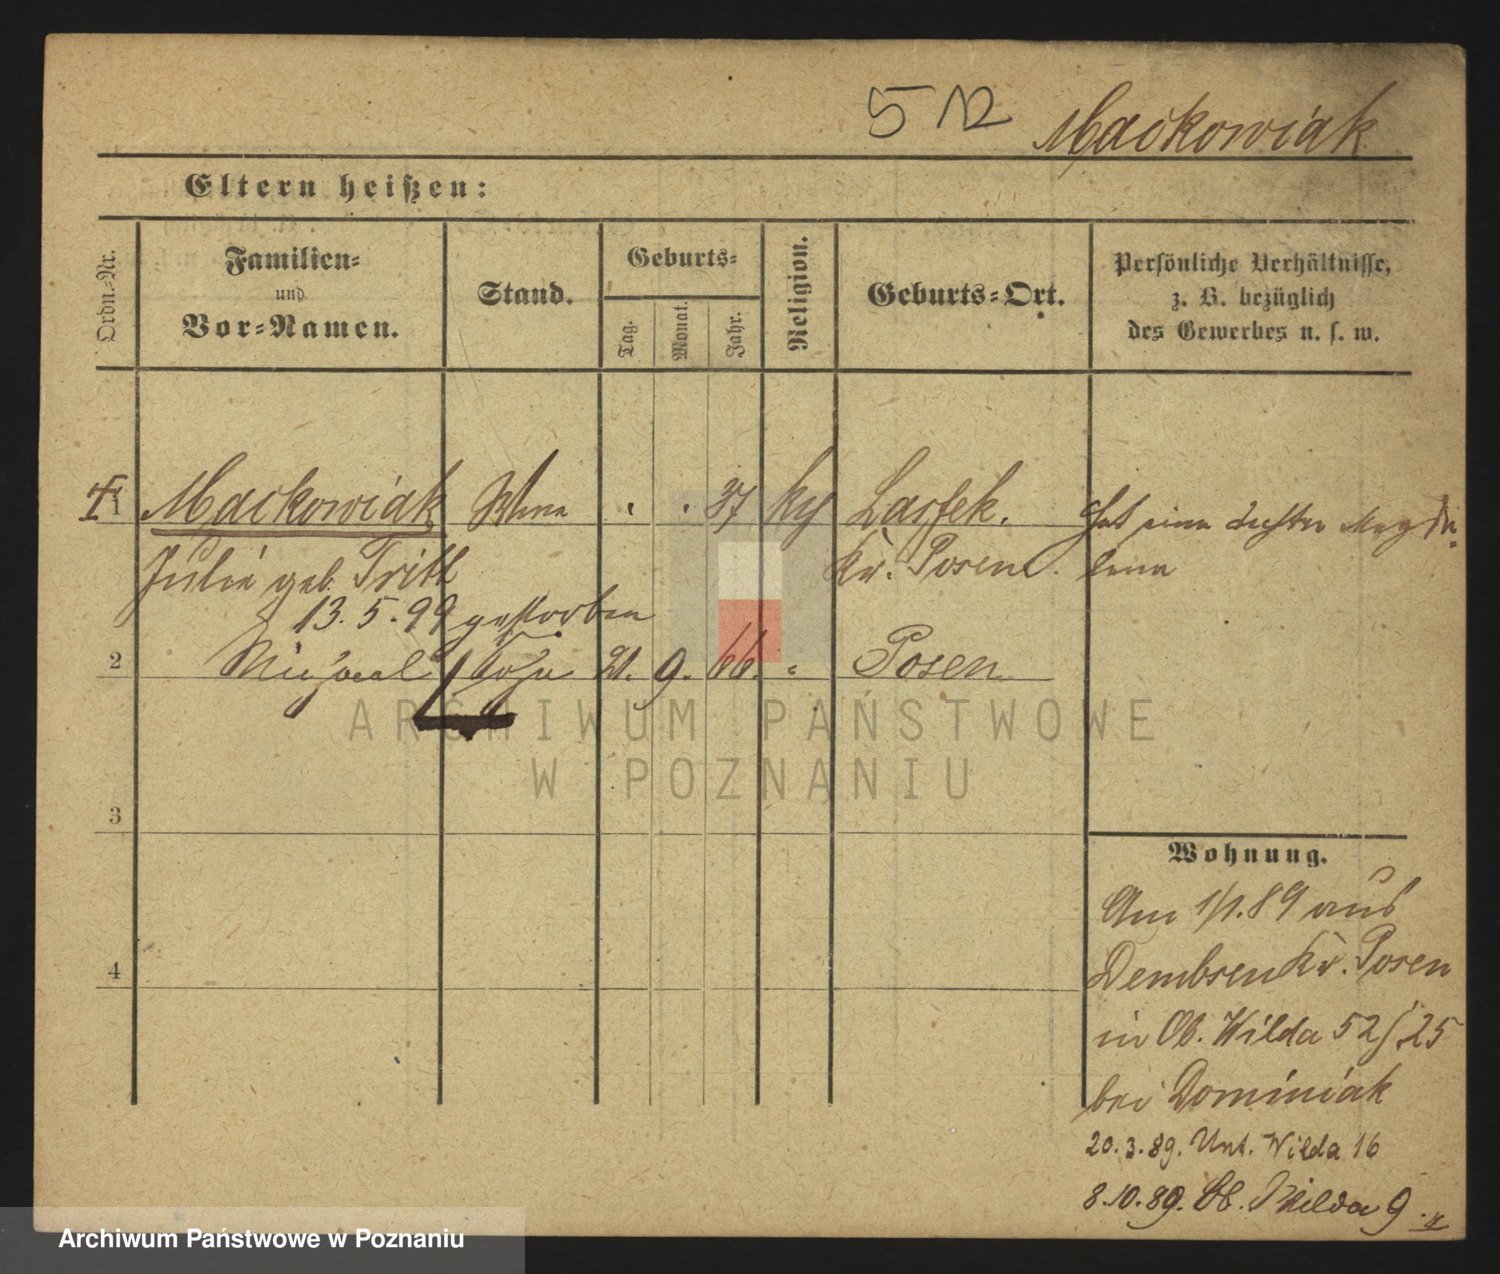 512 Maćkowiak
Eltern heißen:
Ordn.-Nr.
Familien-
und
Vor-Namen.
Stand.
Geburts-
Tag.
Monat.
Jahr.
Religion.
Geburts-Ort.
Persönliche Verhältnisse,
z. B. bezüglich
des Gewerbes u. s. w.
1 Maćkowiak Wwe 37 Lassek. Hat eine Tochter Magda-
Julie geb. Kr. Posen. lena
13.5.99 gestorben
2 Michael Sohn 21. 9. 66. Posen
3
4
Wohnung.
Am 1/1.89 aus
Dembsen Kr. Posen
in Ob. Wilda 52/25
bei Dominiak
20.3.89. Unt. Wilda 16
8.10.89. Ob. Wilda 9.
ARCHIWUM PAŃSTWOWE
W POZNANIU
Archiwum Państwowe w Poznaniu